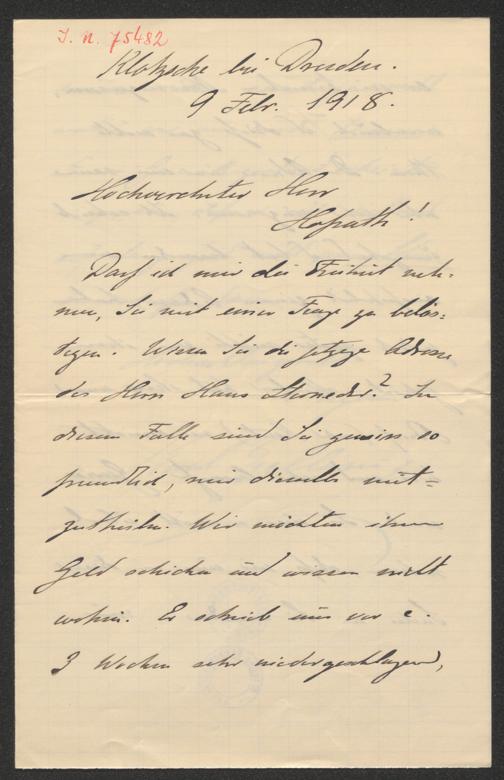 I. N. 75482
Klotzsche bei Dresden.
9 Febr. 1918.
Hochverehrter Herr
Hofrath!
Darf ich mir die Freiheit neh-
men, Sie mit einer Frage zu beläs-
tigen. Wissen Sie die jetzige Adresse
des Herrn Hans Sterneder? In
diesem Falle sind Sie gewiss so
freundlich, mir dieselbe mit-
zutheilen. Wir möchten ihm
Geld schicken und wissen nicht
wohin. Er schrieb uns vor c.
3 Wochen sehr niedergeschlagen,